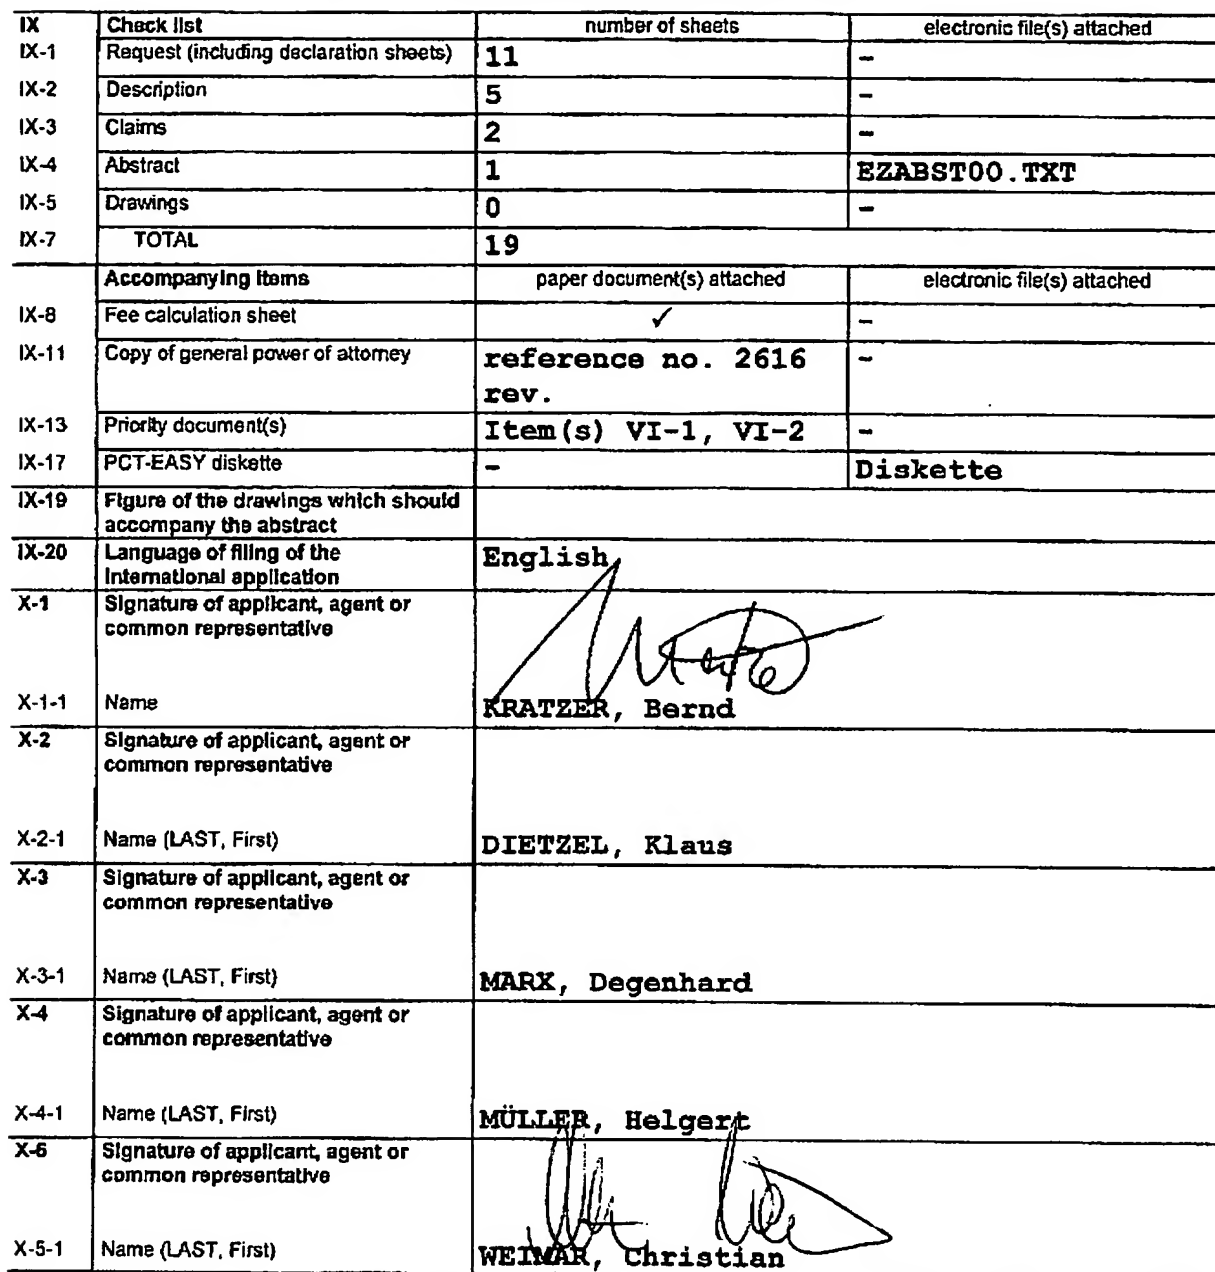 IX Check list number of sheets electronic file(s) attached
IX-1 Request (including declaration sheets) 11 -
IX-2 Description 5 -
IX-3 Claims 2 -
IX-4 Abstract 1 EZABST00.TXT
IX-5 Drawings 0 -
IX-7 TOTAL 19
Accompanying Items paper document(s) attached electronic file(s) attached
IX-8 Fee calculation sheet ✓ -
IX-11 Copy of general power of attorney reference no. 2616 -
rev.
IX-13 Priority document(s) Item(s) VI-1, VI-2 -
IX-17 PCT-EASY diskette - Diskette
IX-19 Figure of the drawings which should
accompany the abstract
IX-20 Language of filing of the English
International application
X-1 Signature of applicant, agent or
common representative
X-1-1 Name KRATZER, Bernd
X-2 Signature of applicant, agent or
common representative
X-2-1 Name (LAST, First) DIETZEL, Klaus
X-3 Signature of applicant, agent or
common representative
X-3-1 Name (LAST, First) MARX, Degenhard
X-4 Signature of applicant, agent or
common representative
X-4-1 Name (LAST, First) MÜLLER, Helgert
X-5 Signature of applicant, agent or
common representative
X-5-1 Name (LAST, First) WEIMAR, Christian